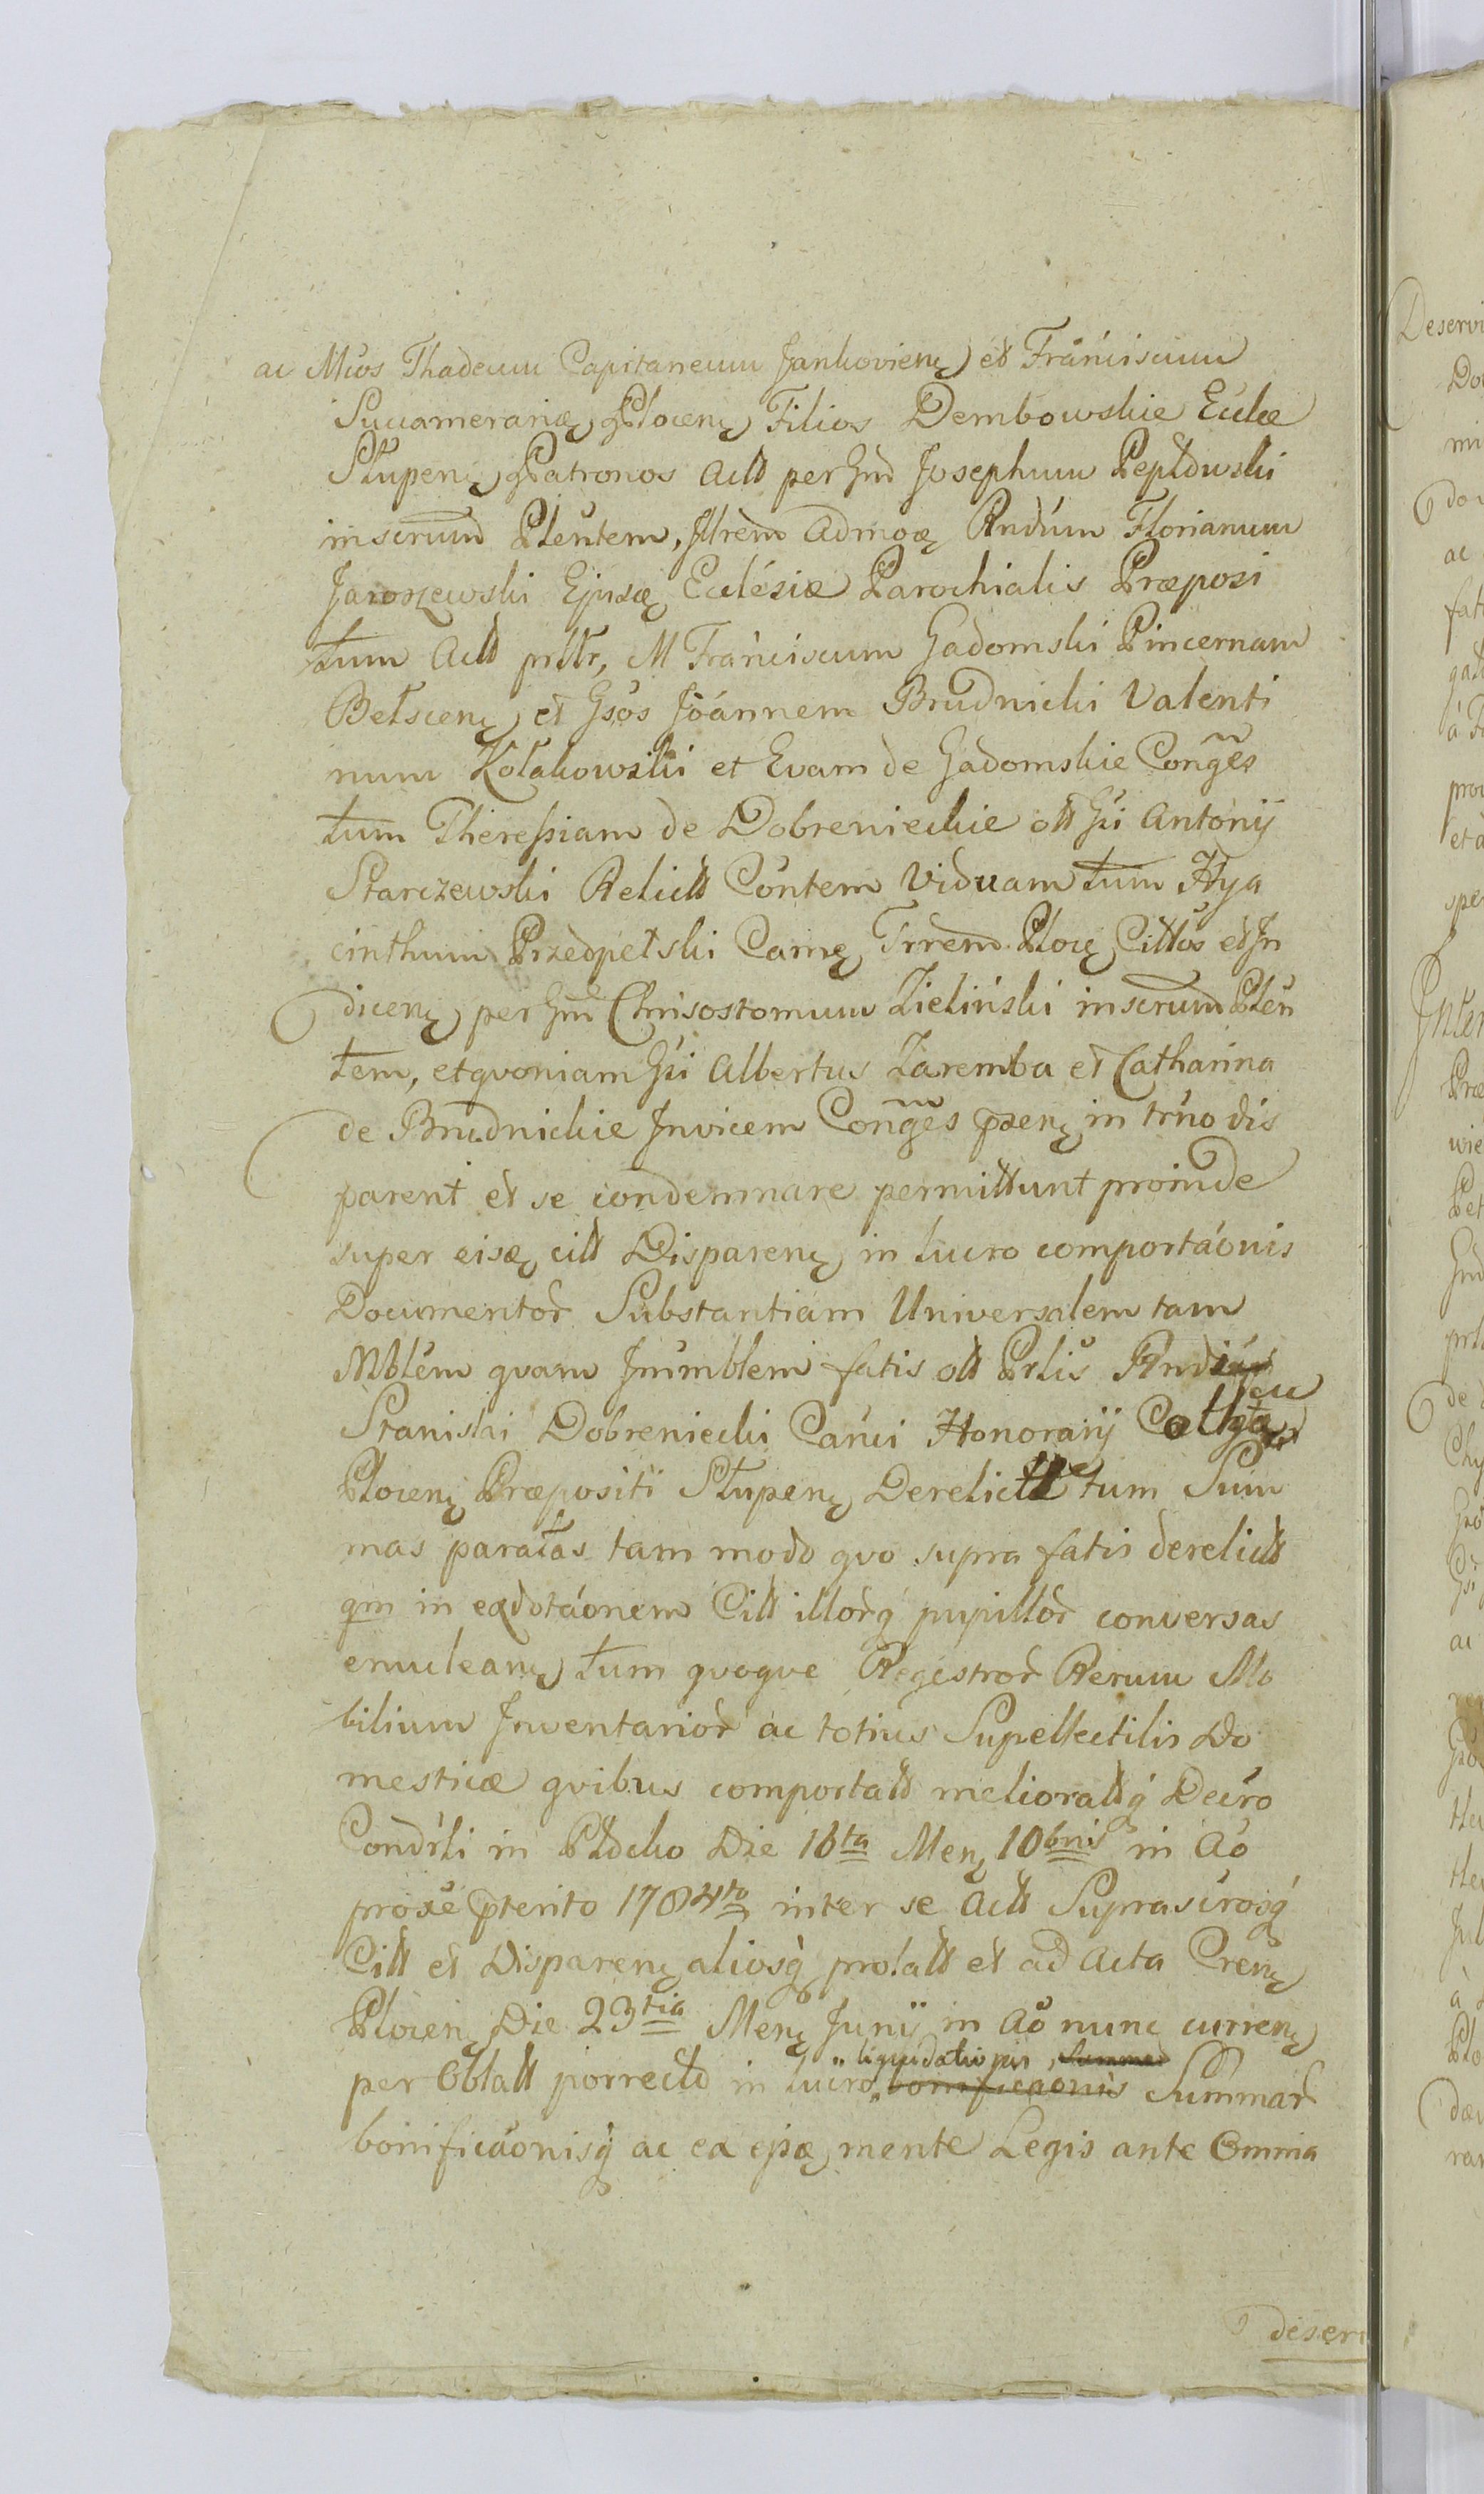 ac Mcos Thadeum Capitaneum Jankovienę et Franciscum
Succamerariæ Plocenę Filios Dembowskie Ecclæ
Słupenę Patronos Actt per Gnd Josephum Pepłowski
inscrum Plentem, Jllrem Admoę Rndum Florianum
Jaroszewski Ejusę Ecclésiæ Parochialis Præposi
tum Actt prttr, M Franciscum Gadomski Pincernam
Bełscenę et Gsos Joánnem Brudnicki Valenti
num Kołakowski et Evam de Gadomskie Conges
tum Theressiam de Dobrenieckie ott Gsi Antonij
Starczewski Relictt Contem Viduam tum Hya
cinthum Przedpełski Camę Trrem Plocę Cittos et Ju
dicenę per Gnd Chrisostomum Zieliński inscrum Plen
tem, et qvoniam Gsi Albertus Zaremba et Catharina
de Brudnickie Jnvicem Conges pxenę in trno dis
parent et se condemnare permittunt proinde
super eisę citt Disparenę in lucro comportáonis
Documentor Substantiam Universalem tam
Mblem qvam Jmmblem fatis ott Prlis Rndi
Stanislai Dobreniecki Canci Honorarij
Plocenę Præpositi Słupenę Derelictt tum Sum
mas paratas tam modo qvo supra fatis derelictt
qm in exdotáonem Citt illorq pupillor conversas
enucleanę tum qvoqve Regestror Rerum Mo
bilium Jnventarior ac totius Supellectilis Do
mesticæ qvibus comportatt melioratt q Decro
Condrli in Płocko Die 16ta Menę 10bris in Ao
proxe pterito 1784to inter se Actt Suprascrosq
Citt et Disparenę aliosq prolatt et ad Acta Crenę
Plocenę Die 23tia Menę Junij in Ao nunc currenę
liquidationis, Summar
per Oblatt porrecto in lucro bonificaonis Summar
bonificáonisq ac ex ejsę mente Legis ante Omnia
deser